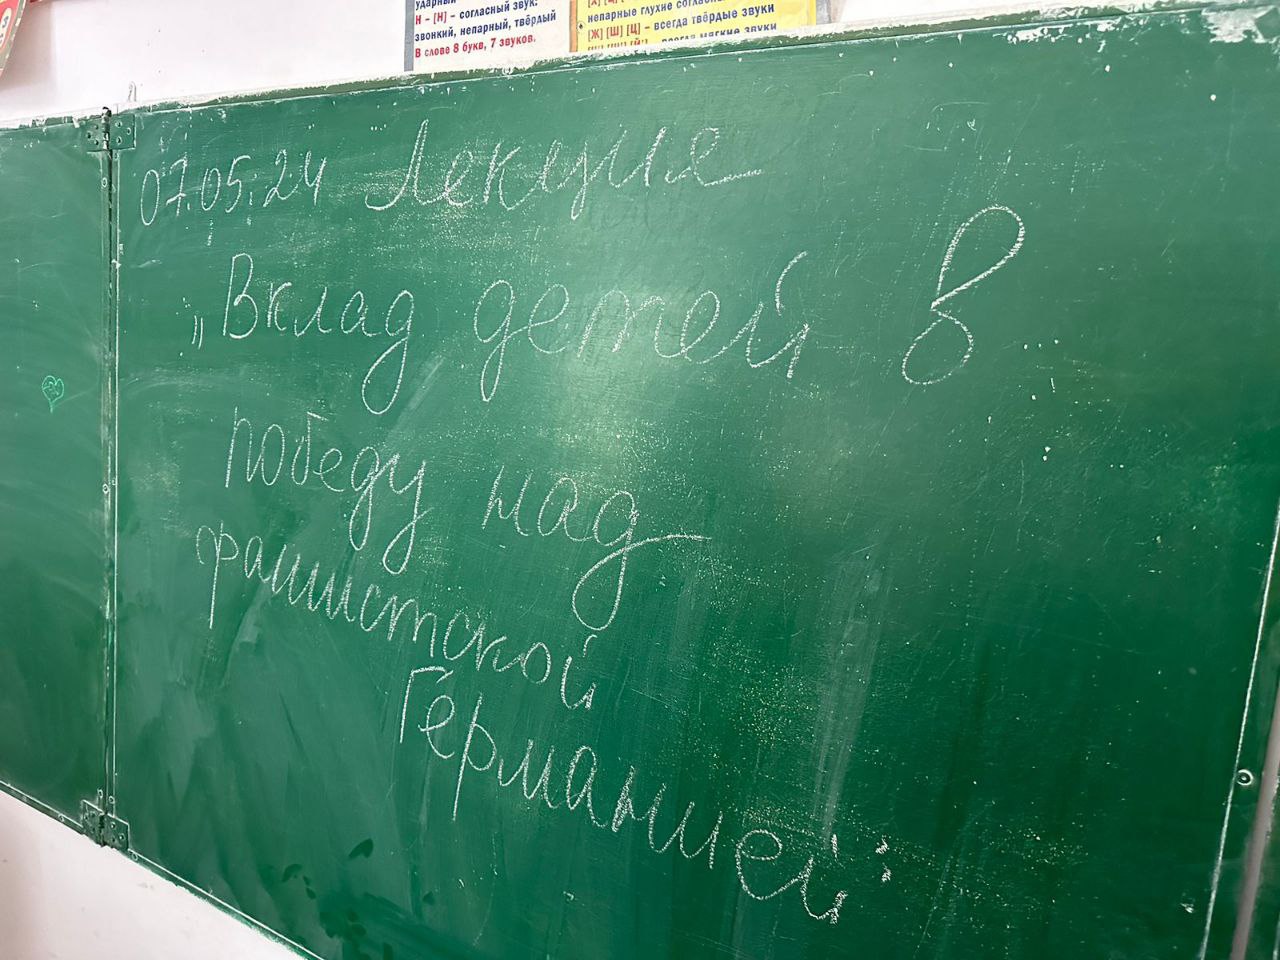 ударный
Н – [Н] – согласный звук:
звонкий, непарный, твёрдый
В слове 8 букв, 7 звуков.
непарные глухие согласны
[Ж] [Ш] [Ц] – всегда твёрдые звуки
всегда мягкие звуки
07.05.24 Лекция
„Вклад детей в
победу над
фашистской
Германией"